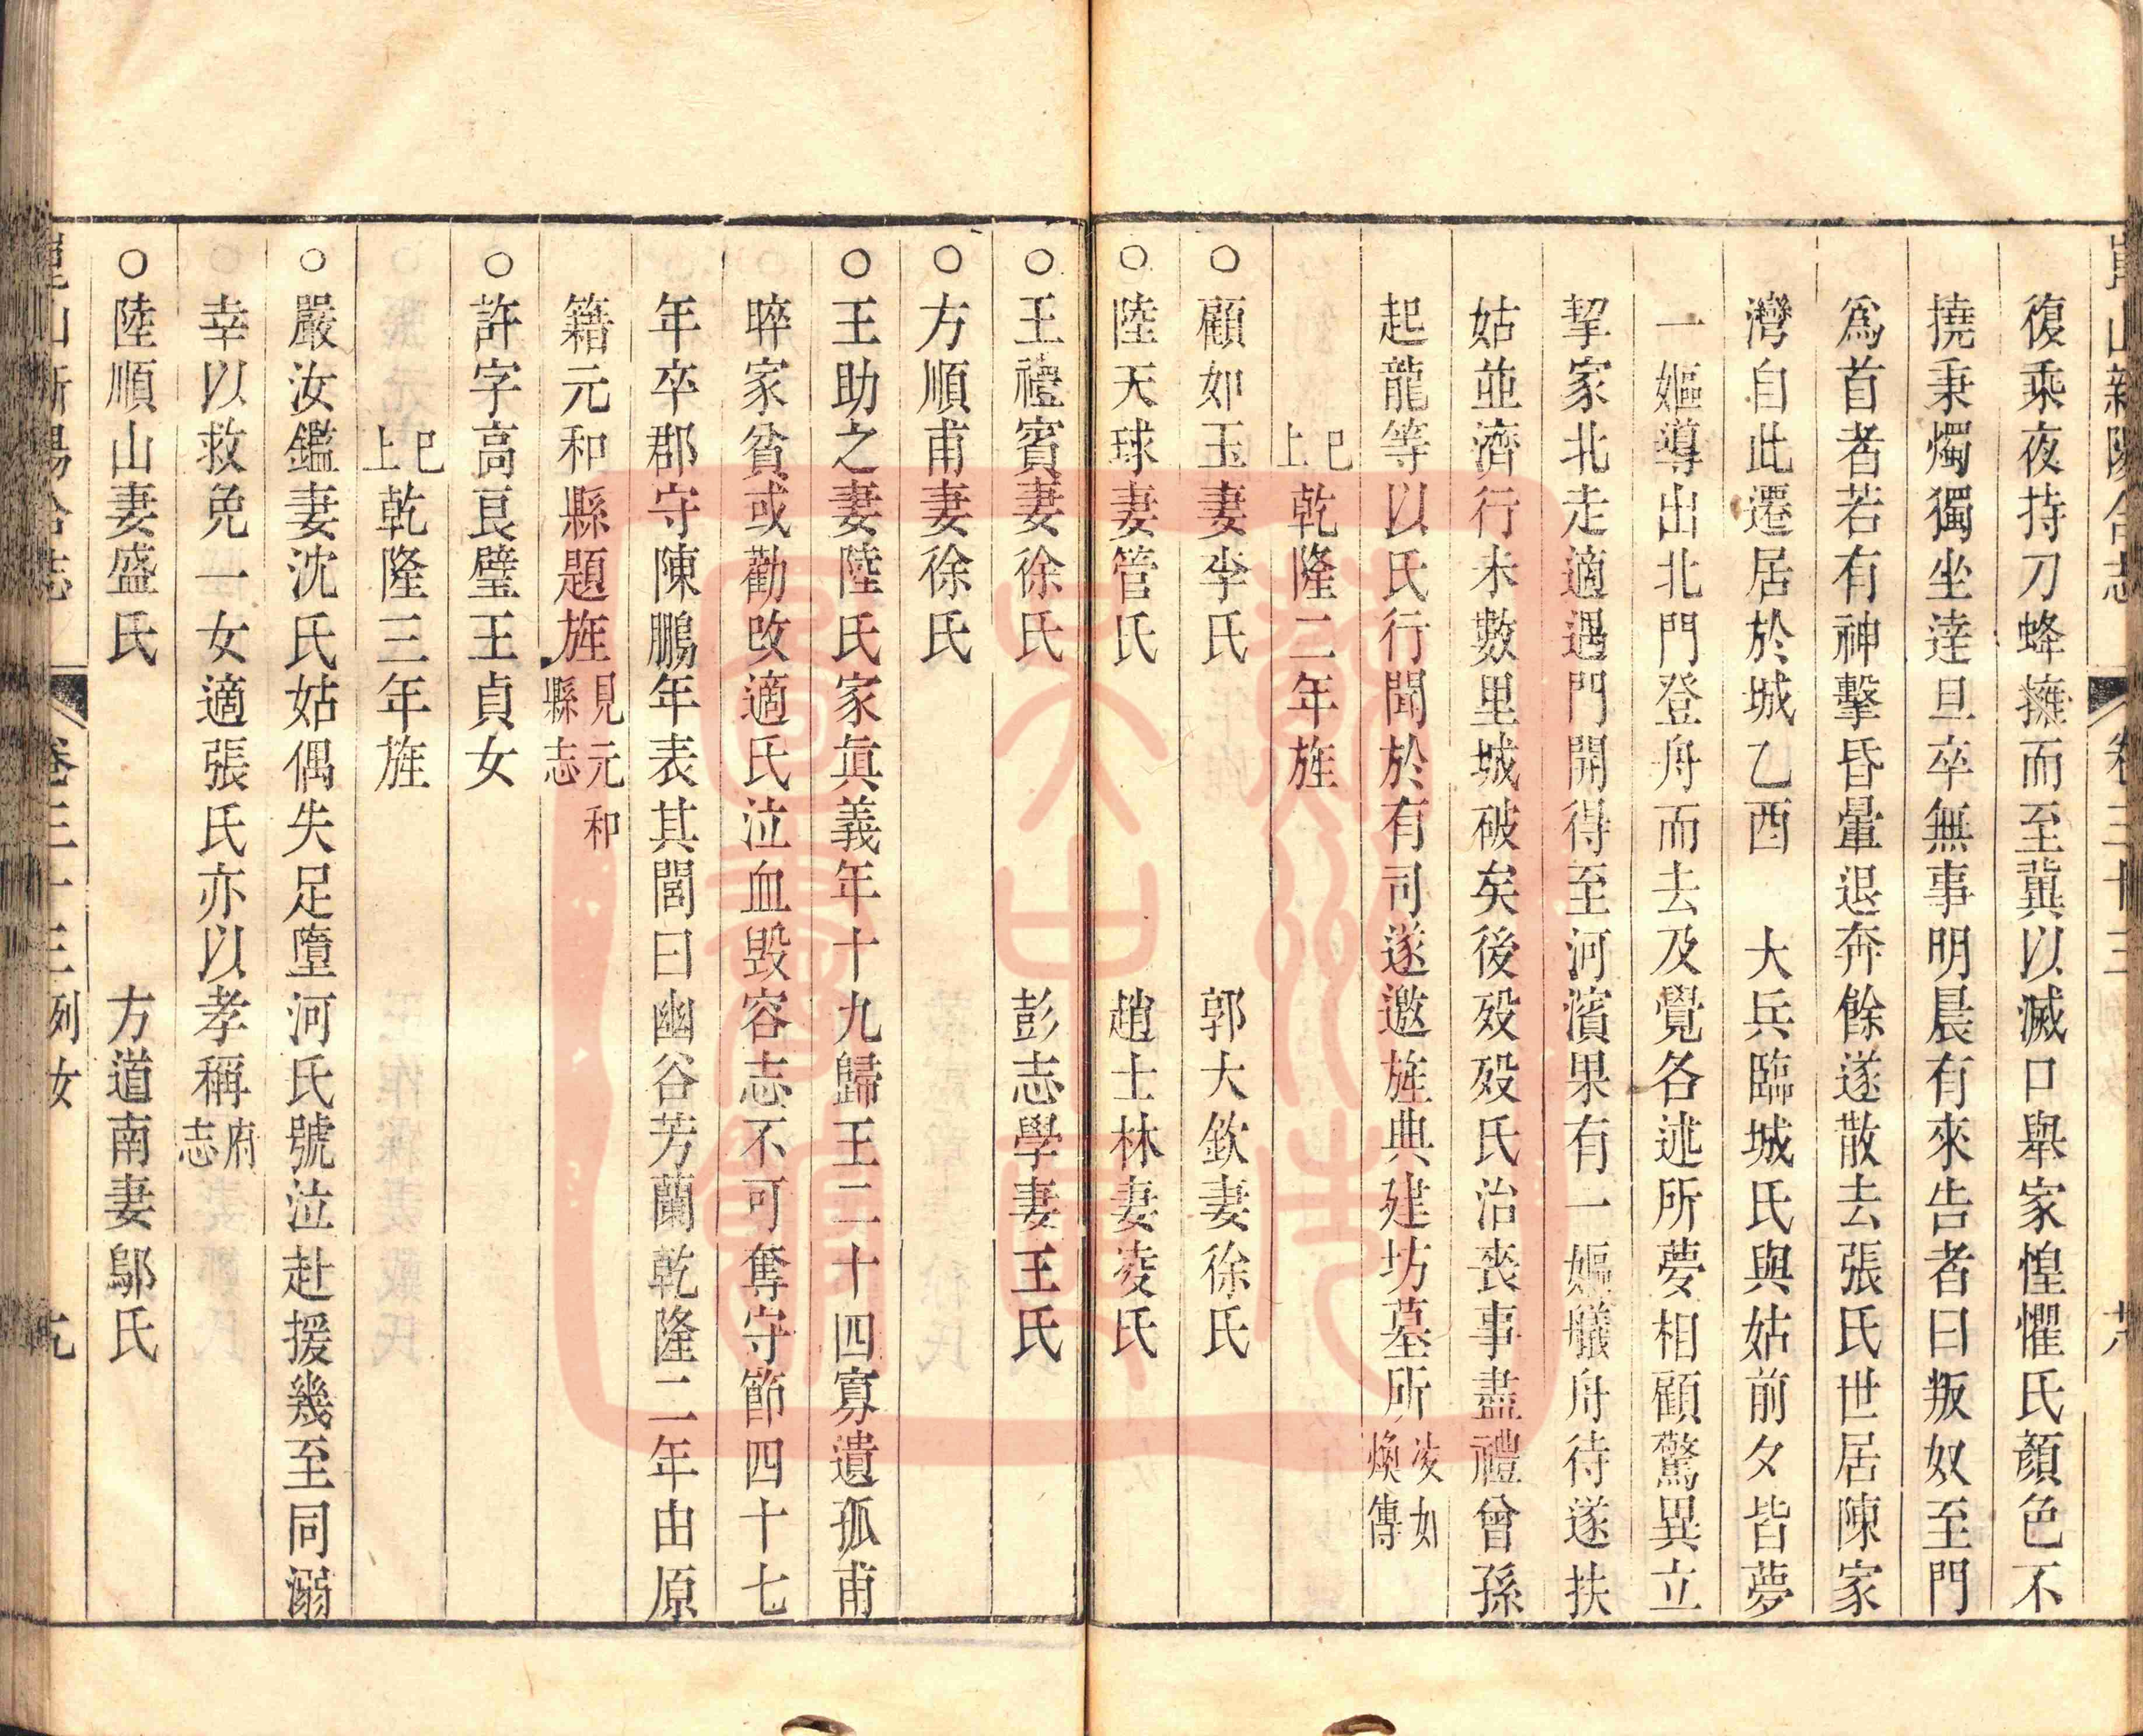 崑山新陽合志
卷三十三
復乘夜持刀蜂擁而至冀以滅口舉家惶懼氏顏色不
撓秉燭獨坐達旦卒無事明晨有來告者曰叛奴至門
爲首者若有神擊昏暈退奔餘遂散去張氏世居陳家
灣自此遷居於城乙酉 大兵臨城氏與姑前夕皆夢
一嫗導出北門登舟而去及覺各述所夢相顧驚異立
挈家北走適遇門開得至河濱果有一嫗艤舟待遂扶
姑並濟行未數里城破矣後歿歿氏治喪事盡禮曾孫
起龍等以氏行聞於有司遂邀旌典建坊墓所凌如煥傳
已上乾隆二年旌
○顧如玉妻李氏 郭大欽妻徐氏
○陸天球妻管氏 趙士林妻凌氏
○王禮賓妻徐氏 彭志學妻王氏
○方順甫妻徐氏
○王助之妻陸氏家眞義年十九歸王二十四寡遺孤甫
晬家貧或勸改適氏泣血毀容志不可奪守節四十七
年卒郡守陳鵬年表其閭曰幽谷芳蘭乾隆二年由原
籍元和縣題旌見元和縣志
○許字高艮璧王貞女
已上乾隆三年旌
○嚴汝鑑妻沈氏姑偶失足墮河氏號泣赴援幾至同溺
幸以救免一女適張氏亦以孝稱府志
○陸順山妻盛氏 方道南妻鄔氏
崑山新陽合志
卷三十三列女